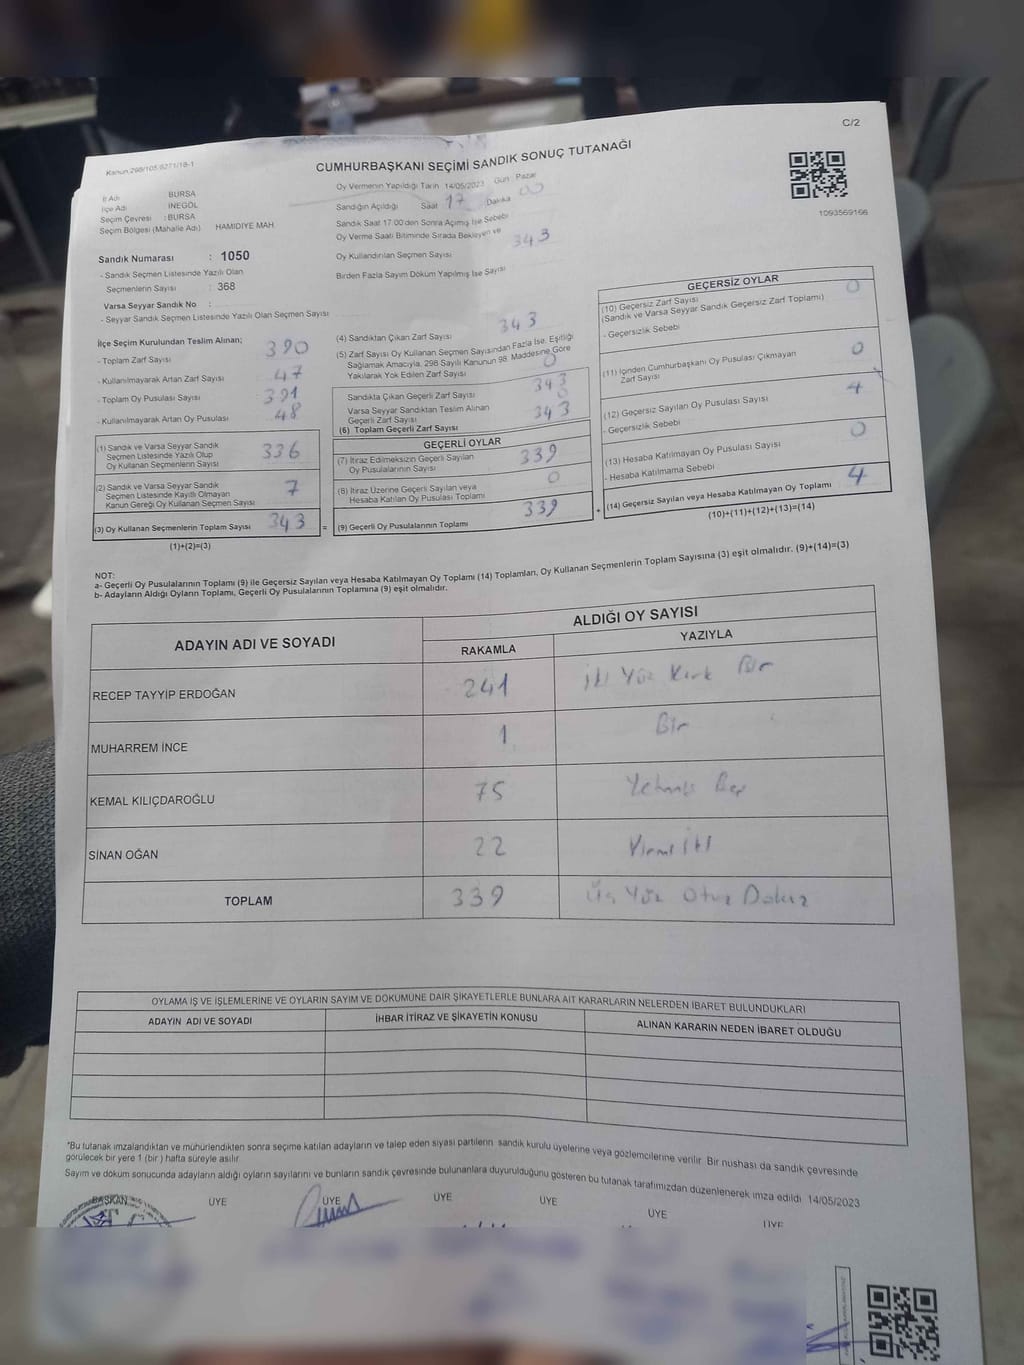 C/2
Kanun:298/105:6271/18-1
CUMHURBAŞKANI SEÇİMİ SANDIK SONUÇ TUTANAĞI
1093569166
İl Adı BURSA
İlçe Adı İNEGÖL
Seçim Çevresi : BURSA
Seçim Bölgesi (Mahalle Adı) HAMIDIYE MAH
Sandık Numarası : 1050
- Sandık Seçmen Listesinde Yazılı Olan
Seçmenlerin Sayısı : 368
Varsa Seyyar Sandık No :
- Seyyar Sandık Seçmen Listesinde Yazılı Olan Seçmen Sayısı
Oy Vermenin Yapıldığı Tarih 14/05/2023 Gün Pazar
Sandığın Açıldığı Saat 17 Dakika 00
Sandık Saat 17:00'den Sonra Açımış İse Sebebi
Oy Verme Saati Bitiminde Sırada Bekleyen ve
Oy Kullandırılan Seçmen Sayısı 343
Birden Fazla Sayım Döküm Yapılmış İse Sayısı
İlçe Seçim Kurulundan Teslim Alınan;
- Toplam Zarf Sayısı 390
- Kullanılmayarak Artan Zarf Sayısı 47
- Toplam Oy Pusulası Sayısı 391
- Kullanılmayarak Artan Oy Pusulası 48
(1) Sandık ve Varsa Seyyar Sandık
Seçmen Listesinde Yazılı Olup
Oy Kullanan Seçmenlerin Sayısı 336
(2) Sandık ve Varsa Seyyar Sandık
Seçmen Listesinde Kayıtlı Olmayan
Kanun Gereği Oy Kullanan Seçmen Sayısı 7
(3) Oy Kullanan Seçmenlerin Toplam Sayısı 343 =
(1)+(2)=(3)
(4) Sandıktan Çıkan Zarf Sayısı 343
(5) Zarf Sayısı Oy Kullanan Seçmen Sayısından Fazla İse, Eşitliği
Sağlamak Amacıyla, 298 Sayılı Kanunun 98. Maddesine Göre
Yakılarak Yok Edilen Zarf Sayısı 0
Sandıkta Çıkan Geçerli Zarf Sayısı 343
Varsa Seyyar Sandıktan Teslim Alınan
Geçerli Zarf Sayısı 0
(6) Toplam Geçerli Zarf Sayısı 343
GEÇERLİ OYLAR
(7) İtiraz Edilmeksizin Geçerli Sayılan
Oy Pusulalarının Sayısı 339
(8) İtiraz Üzerine Geçerli Sayılan veya
Hesaba Katılan Oy Pusulası Toplamı 0
(9) Geçerli Oy Pusulalarının Toplamı 339 +
GEÇERSİZ OYLAR
(10) Geçersiz Zarf Sayısı 0
(Sandık ve Varsa Seyyar Sandık Geçersiz Zarf Toplamı)
- Geçersizlik Sebebi
(11) İçinden Cumhurbaşkanı Oy Pusulası Çıkmayan
Zarf Sayısı 0
(12) Geçersiz Sayılan Oy Pusulası Sayısı 4
- Geçersizlik Sebebi
(13) Hesaba Katılmayan Oy Pusulası Sayısı 0
- Hesaba Katılmama Sebebi
(14) Geçersiz Sayılan veya Hesaba Katılmayan Oy Toplamı 4
(10)+(11)+(12)+(13)=(14)
NOT:
a- Geçerli Oy Pusulalarının Toplamı (9) ile Geçersiz Sayılan veya Hesaba Katılmayan Oy Toplamı (14) Toplamları, Oy Kullanan Seçmenlerin Toplam Sayısına (3) eşit olmalıdır. (9)+(14)=(3)
b- Adayların Aldığı Oyların Toplamı, Geçerli Oy Pusulalarının Toplamına (9) eşit olmalıdır.
ADAYIN ADI VE SOYADI ALDIĞI OY SAYISI
RAKAMLA YAZIYLA
RECEP TAYYİP ERDOĞAN 241 İki Yüz Kırk Bir
MUHARREM İNCE 1 Bir
KEMAL KILIÇDAROĞLU 75 Yetmiş Beş
SİNAN OĞAN 22 Yirmi İki
TOPLAM 339 Üç Yüz Otuz Dokuz
OYLAMA İŞ VE İŞLEMLERİNE VE OYLARIN SAYIM VE DÖKÜMÜNE DAİR ŞİKAYETLERLE BUNLARA AİT KARARLARIN NELERDEN İBARET BULUNDUKLARI
ADAYIN ADI VE SOYADI İHBAR İTİRAZ VE ŞİKAYETİN KONUSU ALINAN KARARIN NEDEN İBARET OLDUĞU
*Bu tutanak imzalandıktan ve mühürlendikten sonra seçime katılan adayların ve talep eden siyasi partilerin sandık kurulu üyelerine veya gözlemcilerine verilir. Bir nushası da sandık çevresinde
görülecek bir yere 1 (bir ) hafta süreyle asılır.
Sayım ve döküm sonucunda adayların aldığı oyların sayılarını ve bunların sandık çevresinde bulunanlara duyurulduğunu gösteren bu tutanak tarafımızdan düzenlenerek imza edildi. 14/05/2023
BAŞKAN ÜYE ÜYE ÜYE ÜYE ÜYE ÜYE